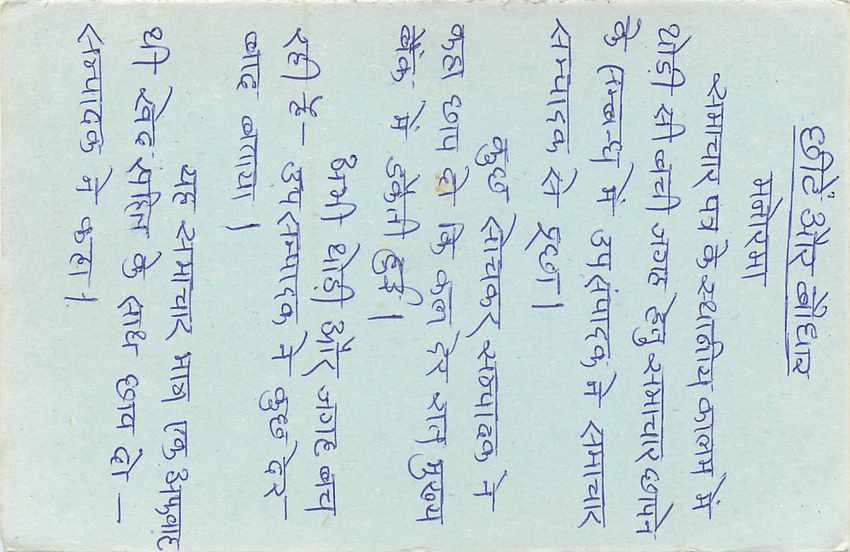 छींटें और बौछार
मनोरमा
समाचार पत्र के स्थानीय कालम में
थोड़ी सी बची जगह हेतु समाचार छापने
के सम्बन्ध में उपसंपादक ने समाचार
सम्पादक से पूछा।
कुछ सोचकर सम्पादक ने
कहा छाप दो कि कल देर रात मुख्य
बैंक में डकैती हुई।
अभी थोड़ी और जगह बच
रही है- उपसम्पादक ने कुछ देर
बाद बताया।
यह समाचार मात्र एक अफवाह
थी खेद सहित के साथ छाप दो —
सम्पादक ने कहा।